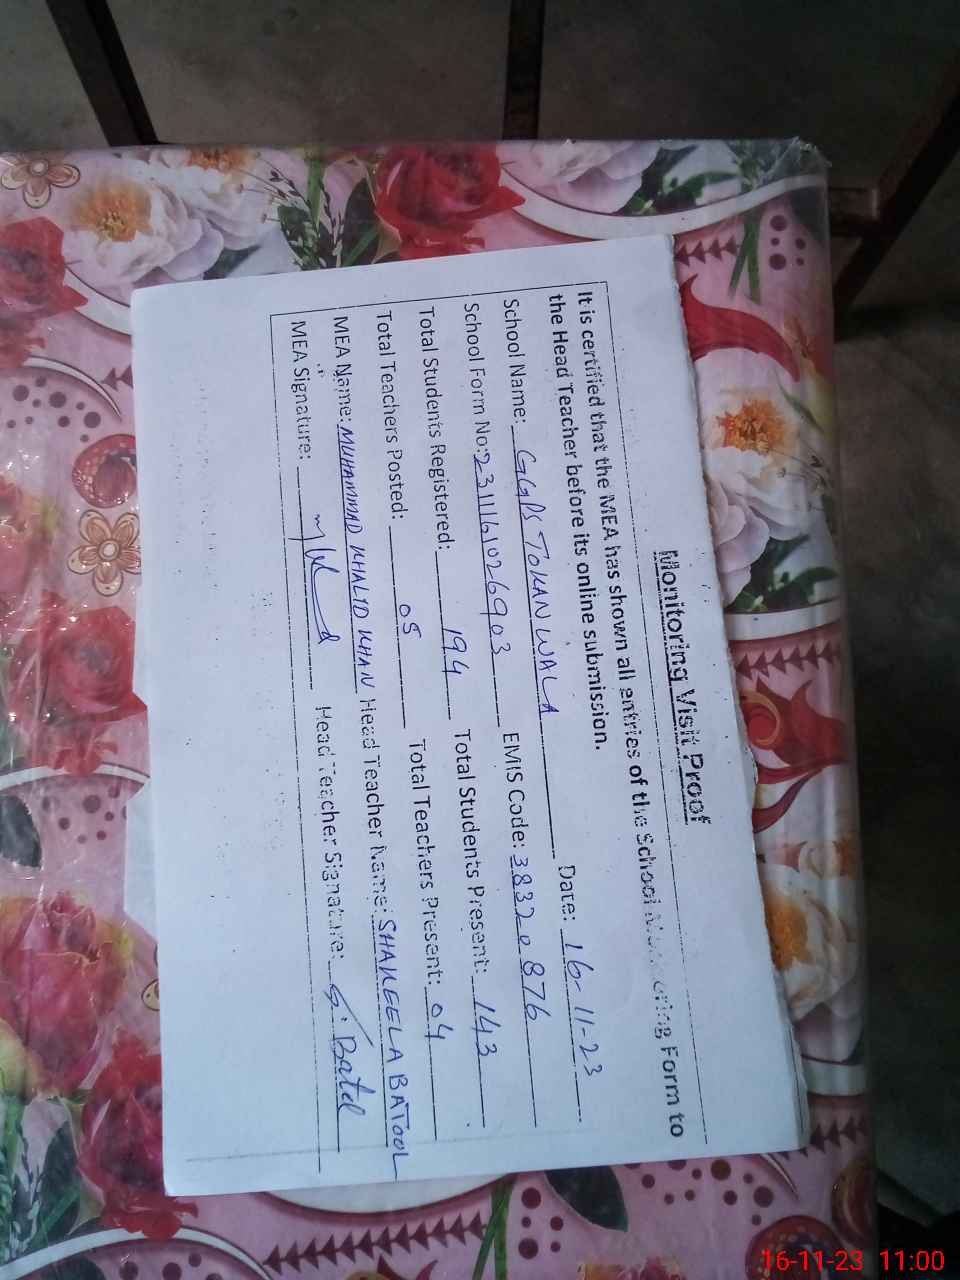 Monitoring Visit Proof
It is certified that the MEA has shown all entries of the School Monitoring Form to
the Head Teacher before its online submission.
School Name: GGPS TOKANWALA Date: 16-11-23
School Form No: 23111161026903 EMIS Code: 38320876
Total Students Registered: 194 Total Students Present: 143
Total Teachers Posted: 05 Total Teachers Present: 04
MEA Name: MUHAMMAD KHALID KHAN Head Teacher Name: SHAKEELA BATOOL
MEA Signature: Head Teacher Signature: S. Batol
16-11-23 11:00